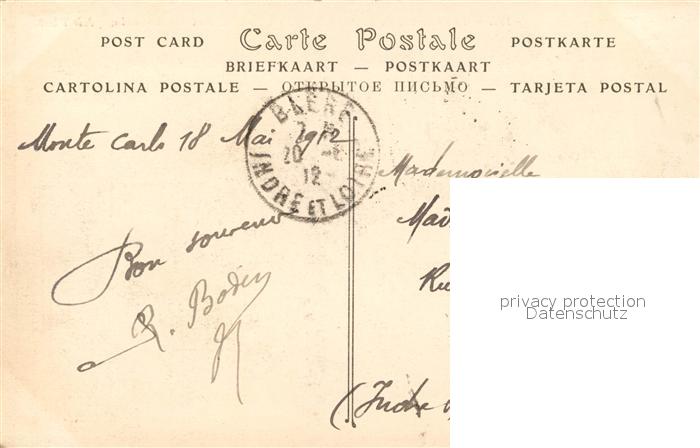 POST CARD Carte Postale POSTKARTE
BRIEFKAART — POSTKAART
CARTOLINA POSTALE — ОТКРЫТОЕ ПИСЬМО — TARJETA POSTAL
BLERE
20
12
INDRE ET LOIRE
Monte Carlo 18 Mai 1912
Bon souvenir
R. Bodin
Mademoiselle
Mad
Ru
(Indre
privacy protection
Datenschutz